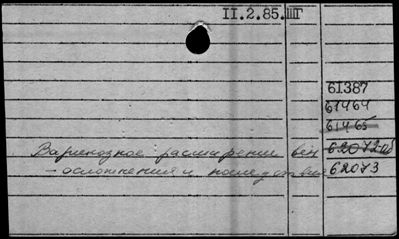 II.2.85.ШГ
61387
61464
61465
Варикозное расширение вен 62072
- осложнения и последствия 62073